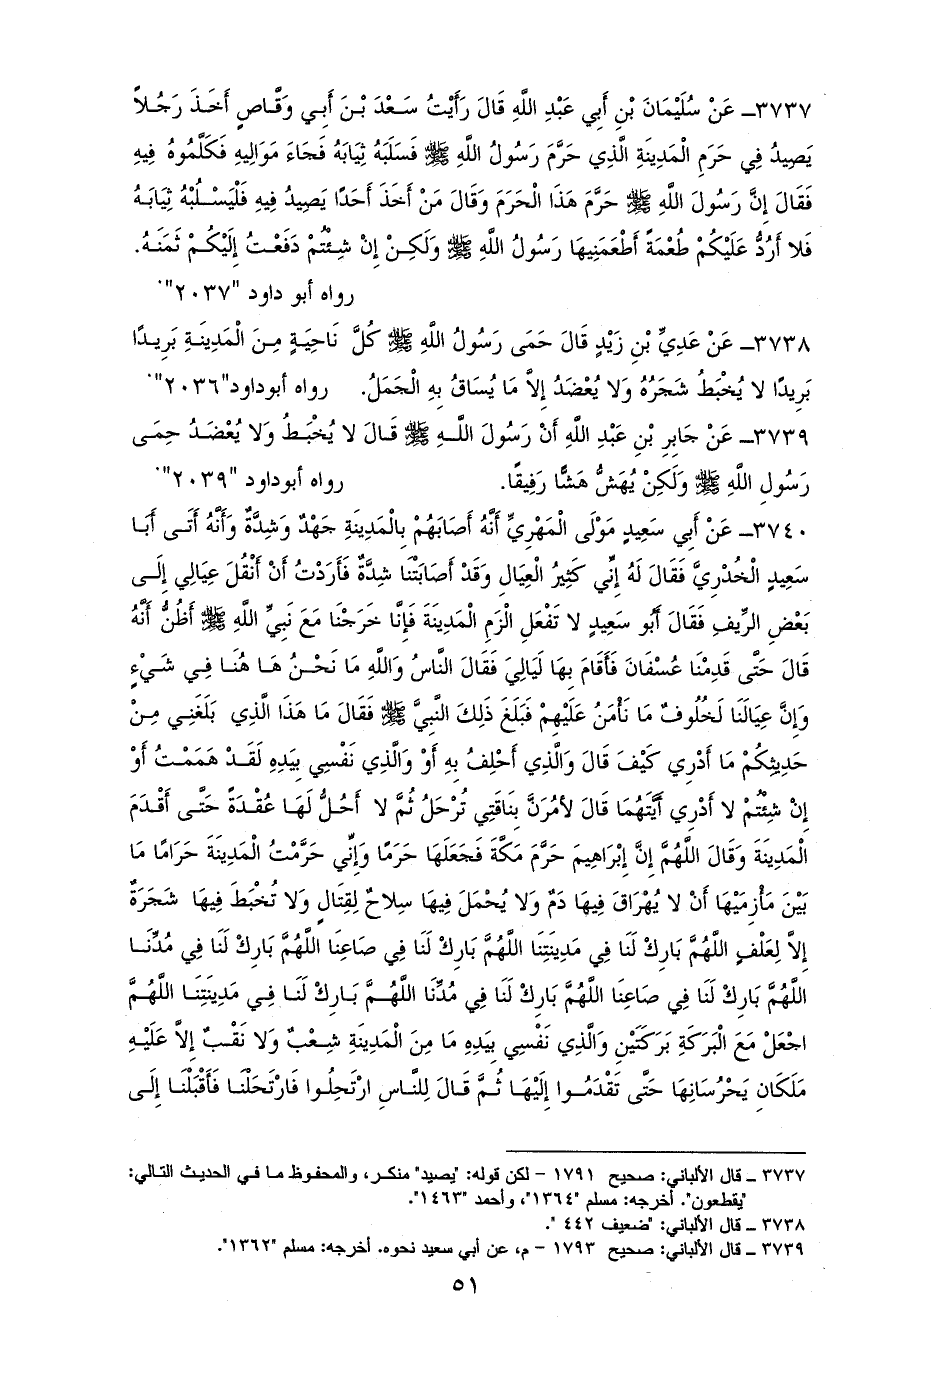 ٣٧٣٧ـ عَنْ سُلَيْمَانَ بْنِ أَبِي عَبْدِ اللَّهِ قَالَ رَأَيْتُ سَعْدَ بْنَ أَبِي وَقَّاصٍ أَخَذَ رَجُلاً
يَصِيدُ فِي حَرَمِ الْمَدِينَةِ الَّذِي حَرَّمَ رَسُولُ اللَّهِ ﷺ فَسَلَبَهُ ثِيَابَهُ فَجَاءَ مَوَالِيهِ فَكَلَّمُوهُ فِيهِ
فَقَالَ إِنَّ رَسُولَ اللَّهِ ﷺ حَرَّمَ هَذَا الْحَرَمَ وَقَالَ مَنْ أَخَذَ أَحَدًا يَصِيدُ فِيهِ فَلْيَسْلُبْهُ ثِيَابَهُ
فَلا أَرُدُّ عَلَيْكُمْ طُعْمَةً أَطْعَمَنِيهَا رَسُولُ اللَّهِ ﷺ وَلَكِنْ إِنْ شِئْتُمْ دَفَعْتُ إِلَيْكُمْ ثَمَنَهُ.
رواه أبو داود "٢٠٣٧".
٣٧٣٨ـ عَنْ عَدِيِّ بْنِ زَيْدٍ قَالَ حَمَى رَسُولُ اللَّهِ ﷺ كُلَّ نَاحِيَةٍ مِنَ الْمَدِينَةِ بَرِيدًا
بَرِيدًا لا يُخْبَطُ شَجَرُهُ وَلا يُعْضَدُ إِلاَّ مَا يُسَاقُ بِهِ الْجَمَلُ. رواه أبوداود"٢٠٣٦".
٣٧٣٩ـ عَنْ جَابِرِ بْنِ عَبْدِ اللَّهِ أَنَّ رَسُولَ اللَّهِ ﷺ قَالَ لا يُخْبَطُ وَلا يُعْضَدُ حِمَى
رَسُولِ اللَّهِ ﷺ وَلَكِنْ يُهَشُّ هَشًّا رَفِيقًا. رواه أبوداود "٢٠٣٩".
٣٧٤٠ـ عَنْ أَبِي سَعِيدٍ مَوْلَى الْمَهْرِيِّ أَنَّهُ أَصَابَهُمْ بِالْمَدِينَةِ جَهْدٌ وَشِدَّةٌ وَأَنَّهُ أَتَى أَبَا
سَعِيدٍ الْخُدْرِيَّ فَقَالَ لَهُ إِنِّي كَثِيرُ الْعِيَالِ وَقَدْ أَصَابَتْنَا شِدَّةٌ فَأَرَدْتُ أَنْ أَنْقُلَ عِيَالِي إِلَى
بَعْضِ الرِّيفِ فَقَالَ أَبُو سَعِيدٍ لا تَفْعَلِ الْزَمِ الْمَدِينَةَ فَإِنَّا خَرَجْنَا مَعَ نَبِيِّ اللَّهِ ﷺ أَظُنُّ أَنَّهُ
قَالَ حَتَّى قَدِمْنَا عُسْفَانَ فَأَقَامَ بِهَا لَيَالِيَ فَقَالَ النَّاسُ وَاللَّهِ مَا نَحْنُ هَا هُنَا فِي شَيْءٍ
وَإِنَّ عِيَالَنَا لَخُلُوفٌ مَا نَأْمَنُ عَلَيْهِمْ فَبَلَغَ ذَلِكَ النَّبِيَّ ﷺ فَقَالَ مَا هَذَا الَّذِي بَلَغَنِي مِنْ
حَدِيثِكُمْ مَا أَدْرِي كَيْفَ قَالَ وَالَّذِي أَحْلِفُ بِهِ أَوْ وَالَّذِي نَفْسِي بِيَدِهِ لَقَدْ هَمَمْتُ أَوْ
إِنْ شِئْتُمْ لا أَدْرِي أَيَّتَهُمَا قَالَ لأَمُرَنَّ بِنَاقَتِي تُرْحَلُ ثُمَّ لا أَحُلُّ لَهَا عُقْدَةً حَتَّى أَقْدَمَ
الْمَدِينَةَ وَقَالَ اللَّهُمَّ إِنَّ إِبْرَاهِيمَ حَرَّمَ مَكَّةَ فَجَعَلَهَا حَرَمًا وَإِنِّي حَرَّمْتُ الْمَدِينَةَ حَرَامًا مَا
بَيْنَ مَأْزِمَيْهَا أَنْ لا يُهْرَاقَ فِيهَا دَمٌ وَلا يُحْمَلَ فِيهَا سِلاحٌ لِقِتَالٍ وَلا تُخْبَطَ فِيهَا شَجَرَةٌ
إِلاَّ لِعَلْفٍ اللَّهُمَّ بَارِكْ لَنَا فِي مَدِينَتِنَا اللَّهُمَّ بَارِكْ لَنَا فِي صَاعِنَا اللَّهُمَّ بَارِكْ لَنَا فِي مُدِّنَا
اللَّهُمَّ بَارِكْ لَنَا فِي صَاعِنَا اللَّهُمَّ بَارِكْ لَنَا فِي مُدِّنَا اللَّهُمَّ بَارِكْ لَنَا فِي مَدِينَتِنَا اللَّهُمَّ
اجْعَلْ مَعَ الْبَرَكَةِ بَرَكَتَيْنِ وَالَّذِي نَفْسِي بِيَدِهِ مَا مِنَ الْمَدِينَةِ شِعْبٌ وَلا نَقْبٌ إِلاَّ عَلَيْهِ
مَلَكَانِ يَحْرُسَانِهَا حَتَّى تَقْدَمُوا إِلَيْهَا ثُمَّ قَالَ لِلنَّاسِ ارْتَحِلُوا فَارْتَحَلْنَا فَأَقْبَلْنَا إِلَى
٣٧٣٧ ـ قال الألباني: صحيح ١٧٩١ – لكن قوله: "يصيد" منكر، والمحفوظ ما في الحديث التالي:
"يقطعون". أخرجه: مسلم "١٣٦٤"، وأحمد "١٤٦٣".
٣٧٣٨ ـ قال الألباني: "ضعيف ٤٤٢ ".
٣٧٣٩ ـ قال الألباني: صحيح ١٧٩٣ – م، عن أبي سعيد نحوه. أخرجه: مسلم "١٣٦٢".
٥١